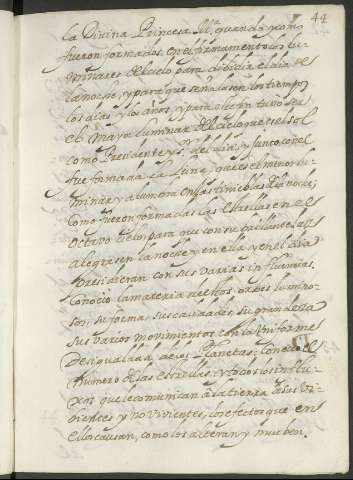 44
la Divina Princesa Mª. quando y como
fueron formados en el firmamento los lu-
minares del cielo para dibidir el dia de
la noche, y para que señalasen los tiempos
los dias y los años, y para
el Mayor luminar del cielo que es el sol
como Presidente y sʳ. del dia, y junto con el
fue formada la Luna, que es el menor lu-
minar y alumbra en las tinieblas de la noche,
como fueron formadas las estrellas en el
octavo cielo, para que con su brillante luz
alegrasen la noche y en ella y en el dia
presidieran con sus varias influencias.
Conocio la materia de estos orbes lumino-
sos, su forma, sus calidades, su grandeza
sus varios movimientos con la uniforme
desigualdad de los Planetas, conocio el
numero de las estrellas, y todos los influ-
xos que le comunican a la tierra, a sus vi-
vientes y no vivientes, los efectos que en
ellos causan, como los alteran y mueben.